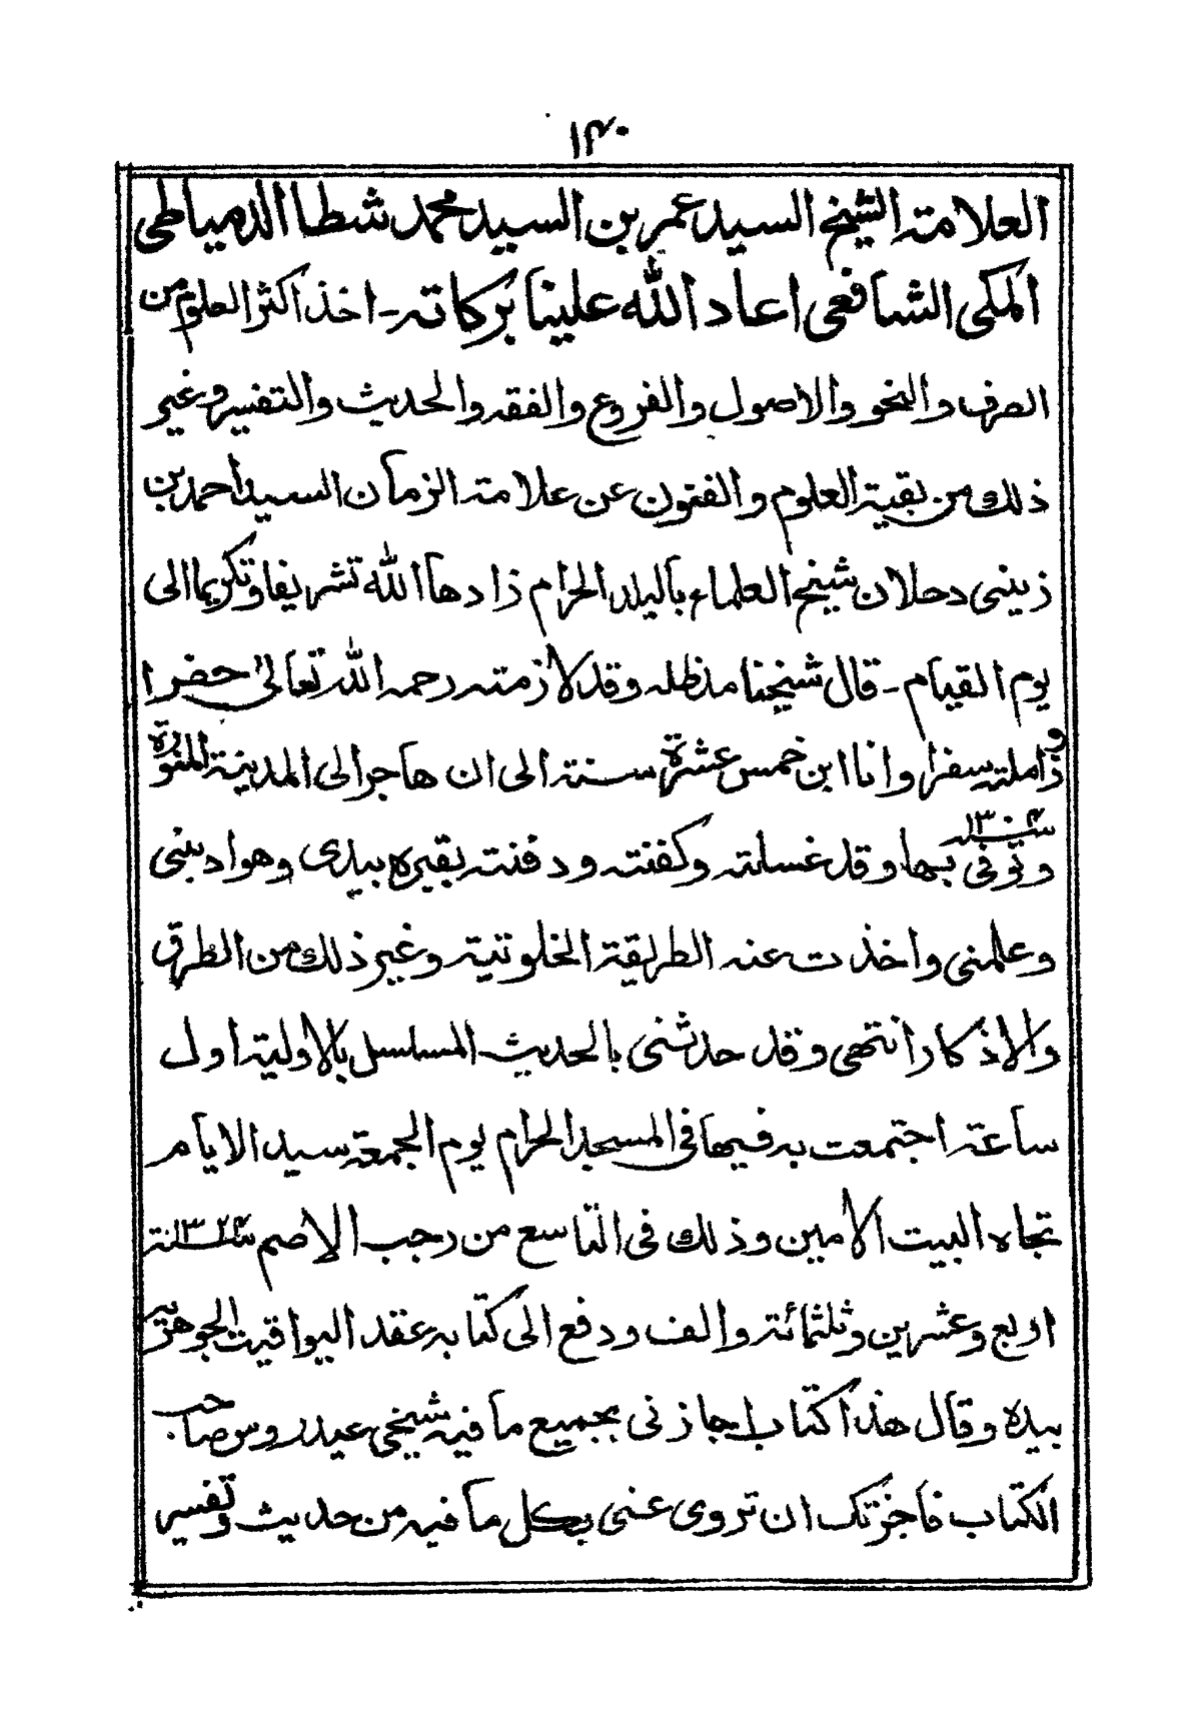 ١٣٠
العلامة الشيخ السيد عمر بن السيد محمد شطا الدمياطي
المكي الشافعي اعاد الله علينا بركاته ـ اخذ اكثر العلوم من
الصرف والنحو والاصول والفروع والفقه والحديث والتفسير وغير
ذلك من بقية العلوم والفنون عن علامة الزمان السيد احمد بن
زيني دحلان شيخ العلماء بالبلد الحرام زادها الله تشريفا وتكريما الى
يوم القيام ـ قال شيخنا مدظله وقد لازمته رحمه الله تعالى حضرا
و زاملته سفرا وانا ابن خمس عشرة سنة الى ان هاجر الى المدينة المنورة
وتوفي بها سنة ١٣٠٤ وقد غسلته وكفنته ودفنته بقبره بيدى وهو ادبنى
وعلمنى واخذت عنه الطريقة الخلوتية وغير ذلك من الطرق
والاذكار انتهى وقد حدثنى بالحديث المسلسل بالاولية اول
ساعة اجتمعت به فيها فى المسجد الحرام يوم الجمعة سيد الايام
تجاه البيت الامين وذلك فى التاسع من رجب الاصم سنة ١٣٢٤
اربع وعشرين وثلثمائة والف ودفع الى كتابه عقد اليواقيت الجوهرية
بيده وقال هذا كتاب اجازنى بجميع ما فيه شيخى عيدروس صاحب
الكتاب فاجزتك ان تروى عنى بكل ما فيه من حديث وتفسير